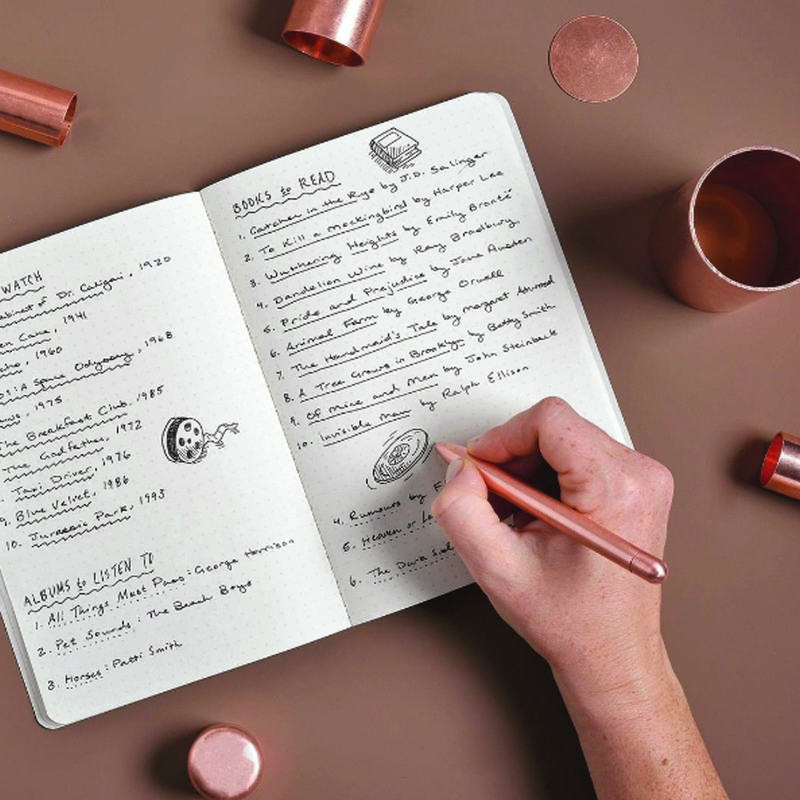 WATCH
abinet of Dr. Caligari, 1920
en Cane, 1941
cho, 1960
01: A Space Odyssey, 1968
aws, 1975
The Breakfast Club, 1985
The Godfather, 1972
Taxi Driver, 1976
9. Blue Velvet, 1986
10. Jurassic Park, 1993
ALBUMS to LISTEN TO
1. All Things Must Pass: George Harrison
2. Pet Sounds: The Beach Boys
3. Horses: Patti Smith
BOOKS to READ
1. Catcher in the Rye by J.D. Salinger
2. To Kill a Mockingbird by Harper Lee
3. Wuthering Heights by Emily Brontë
4. Dandelion Wine by Ray Bradbury
5. Pride and Prejudice by Jane Austen
6. Animal Farm by George Orwell
7. The Handmaid's Tale by Margaret Atwood
8. A Tree Grows in Brooklyn by Betty Smith
9. Of Mice and Men by John Steinbeck
10. Invisible Man by Ralph Ellison
4. Rumours by
5. Heaven or
6. The Dark